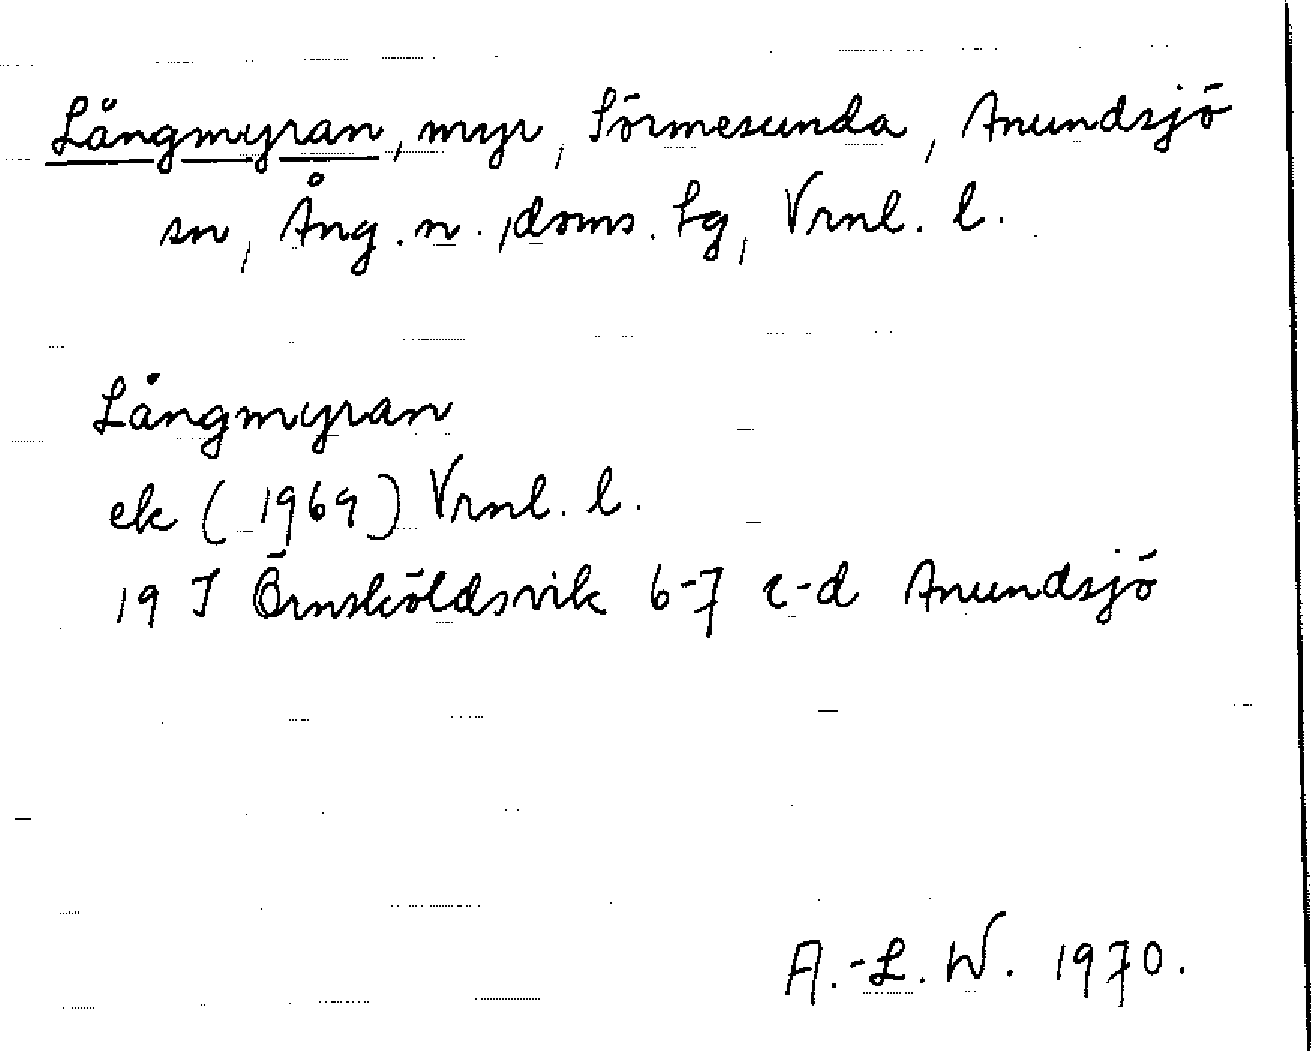 Långmyran, myr, Sörmesunda, Anundsjö
sn, Ång. n. doms. lg, Vrnl. l.
Långmyran
ek (1969) Vrnl. l.
19 I Örnsköldsvik 6-7 c-d Anundsjö
A.-L. W. 1970.